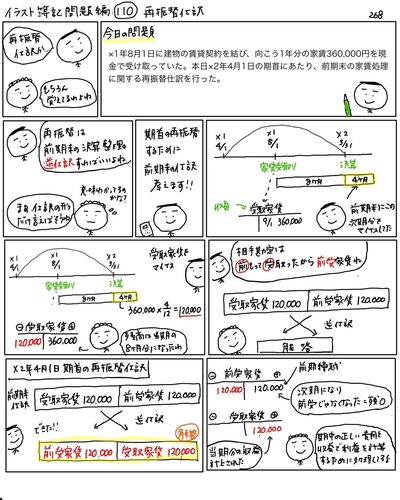 イラスト簿記問題編 110 再振替仕訳
268
再振替
仕訳か…
もちろん
覚えてるわよね
今日の問題
×1年8月1日に建物の賃貸契約を結び、向こう1年分の家賃360,000円を現
金で受け取っていた。本日×2年4月1日の期首にあたり、前期末の家賃処理
に関する再振替仕訳を行った。
再振替は
前期末の決算整理を
逆仕訳すればいいよね
まぁ仕訳の形
だけ言えばそうね
期首の再振替
するために
前期末の仕訳
考えます!!
×1
4/1
×1
8/1
×2
3/31
決算
家賃受取り
8ヶ月
4ヶ月
収益
受取家賃
8/1 360,000
前期末にこの
次期分を
マイナスしてた
×1
4/1
×1
8/1
×2
3/31
決算
家賃受取り
8ヶ月
4ヶ月
360,000 × 4/12 = 120,000
受取家賃を
マイナス
⊖ 受取家賃 ⊕
120,000
360,000
8ヶ月分になったわ
相手勘定は
前もって受取ったから前受家賃ね
受取家賃 120,000
前受家賃 120,000
逆仕訳
解答
×2年4月1日 期首の再振替仕訳
前期末
仕訳
受取家賃 120,000
前受家賃 120,000
できた!!
逆仕訳
解答
前受家賃 120,000
受取家賃 120,000
⊖ 前受家賃 ⊕
120,000
120,000
前期繰越
次期になり
前受じゃなくなった=残0
⊖ 受取家賃 ⊕
120,000
当期分の収益
期中の正しい費用と
収益で利益を計算
するために